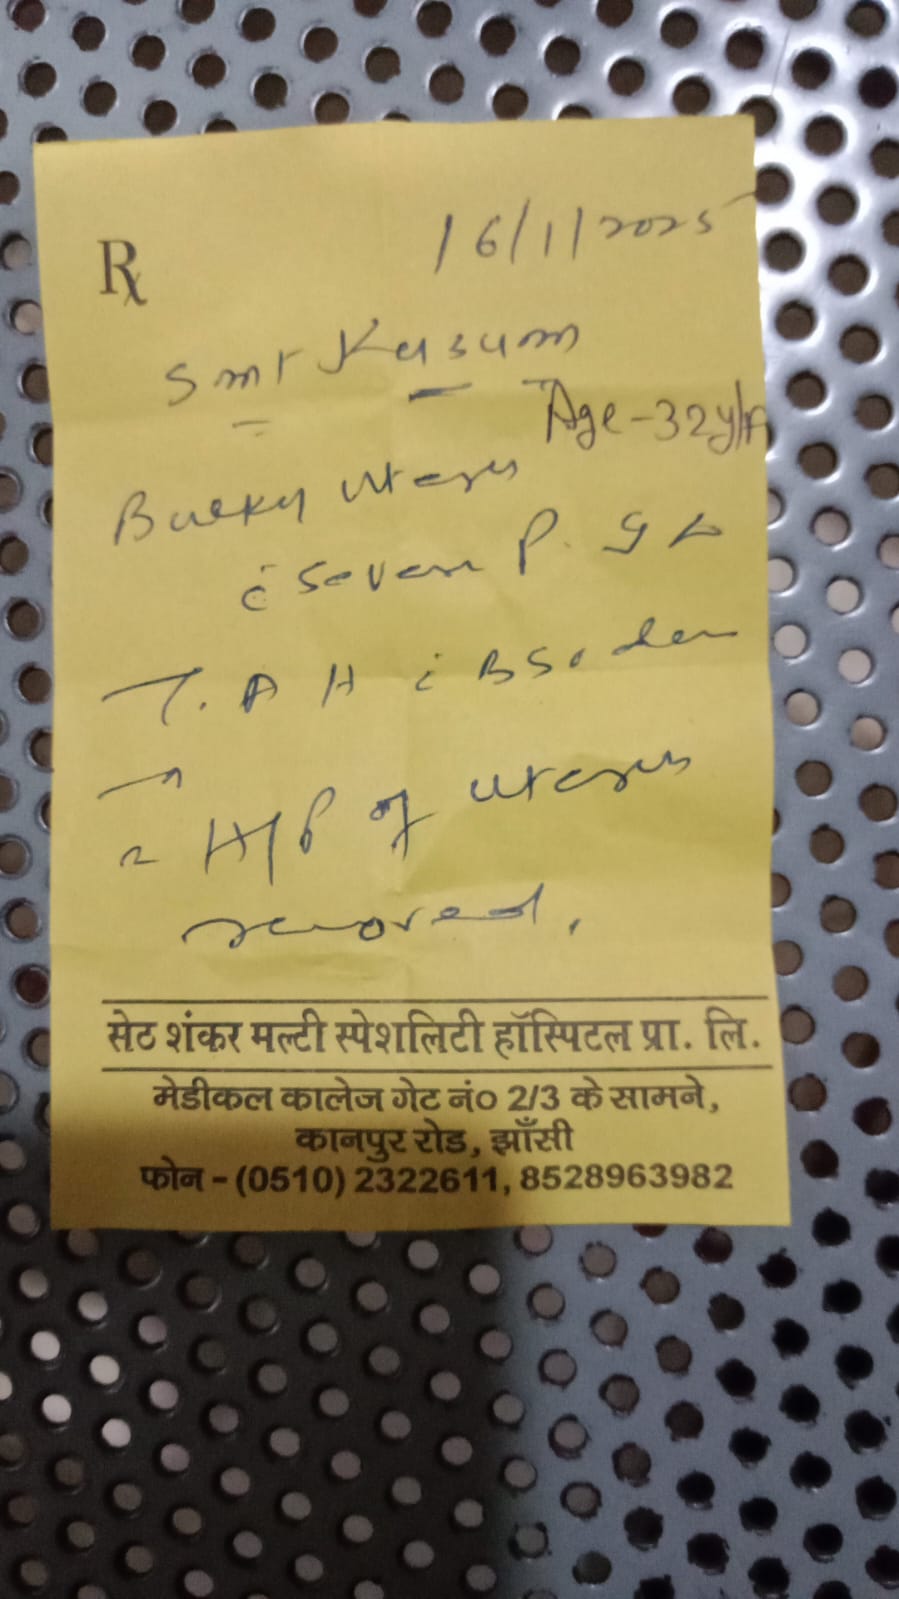 Rx
16/1/2025
Smt Kusum
Age-32y/F
Bulky uterus
c̄ Severe P.
T.A H c̄ BSO done
→
H/P of uterus
removed.
सेठ शंकर मल्टी स्पेशलिटी हॉस्पिटल प्रा. लि.
मेडीकल कालेज गेट नं० 2/3 के सामने,
कानपुर रोड, झाँसी
फोन - (0510) 2322611, 8528963982